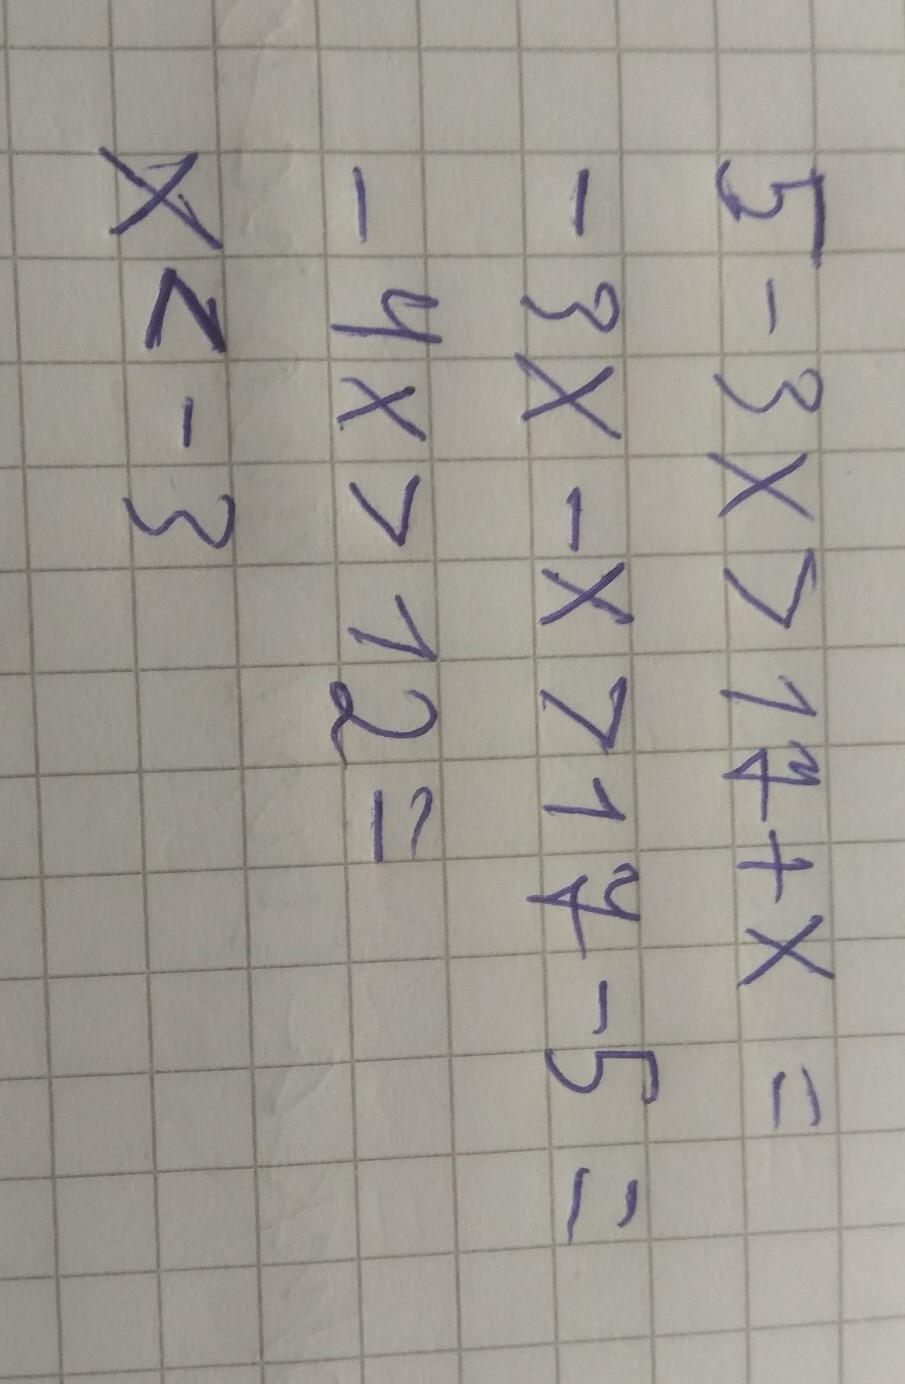 5-3x>17+x=
-3x-x>17-5=
-4x>12=
x<-3